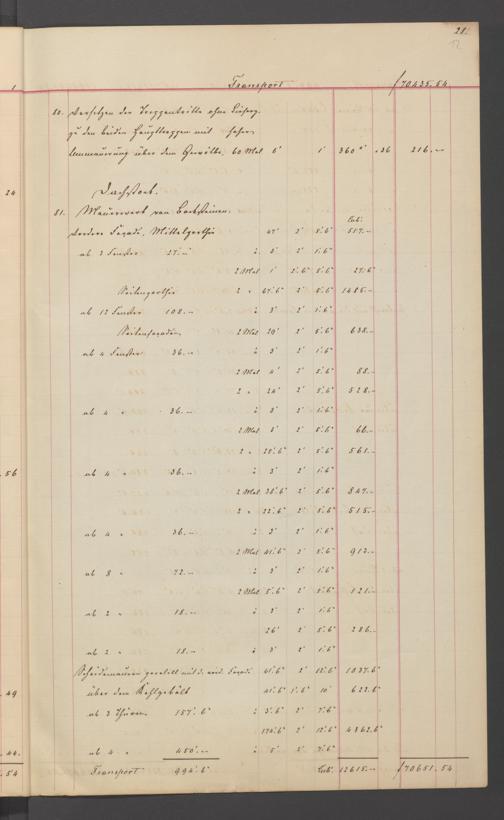 28.
12
Transport f 70435.54
80. Versetzen der Treppentritte ohne
zu den beiden Haupttreppen mit
über dem Gewölbe 60 Mal 6' 1' 360" .36 216.—
Dachstock.
81. Mauerwerk von Backsteinen. Cub'
Vordere Façade, Mittelparthie 47' 2' 5.6" 517.—
ab 3 Fenster 27.— 2. 6' 2' 1.6"
2 Mal 1' 2'.6" 5.6" 27.6"
Seitenparthie 2 " 67.6" 2' 5.6" 1485.—
ab 12 Fenster 108.— 3' 2' 1.6"
Seitenfaçaden 2 Mal 29' 2' 5.6" 638.—
ab 4 Fenster 36.— 3' 2' 1.6"
2 Mal 4' 2' 5.6" 88.—
2 " 24' 2' 5.6" 528.—
ab 4 " 36.— 3' 2' 1.6"
2 Mal 2' 5.6" 66.—
2 " 25'.6" 2' 5.6" 561.—
ab 4 " 36.— 3' 2' 1.6"
2 Mal 38'.6" 2' 5.6" 847.—
2 " 2' 5.6" 515.—
ab 4 " 36.— 3' 2' 1.6"
2 Mal 41'.6" 2' 5.6" 913.—
ab 8 " 72.— 3' 2' 1.6"
2 Mal 5'.6" 2' 5.6" 121.—
ab 2 " 18.— 3' 2' 1.6"
26' 2' 5.6" 286.—
ab 2 " 18.— 3' 2' 1.6"
Scheidemauern Façade 41'.6" 2' 12'.6" 1037.6"
über dem Kehlgebälk 41'.6" 1'.6" 10' 622.6"
ab 3 Thüren 157'.6" 3'.6" 2' 7'.6"
174'.6" 2' 12'.6" 4362.6"
ab 4 " 450'.— 5' 2' 7'.6"
Transport 994'.6" Cub' 12615.— f 70651.54
1
24
.56
.49
.44.
.54